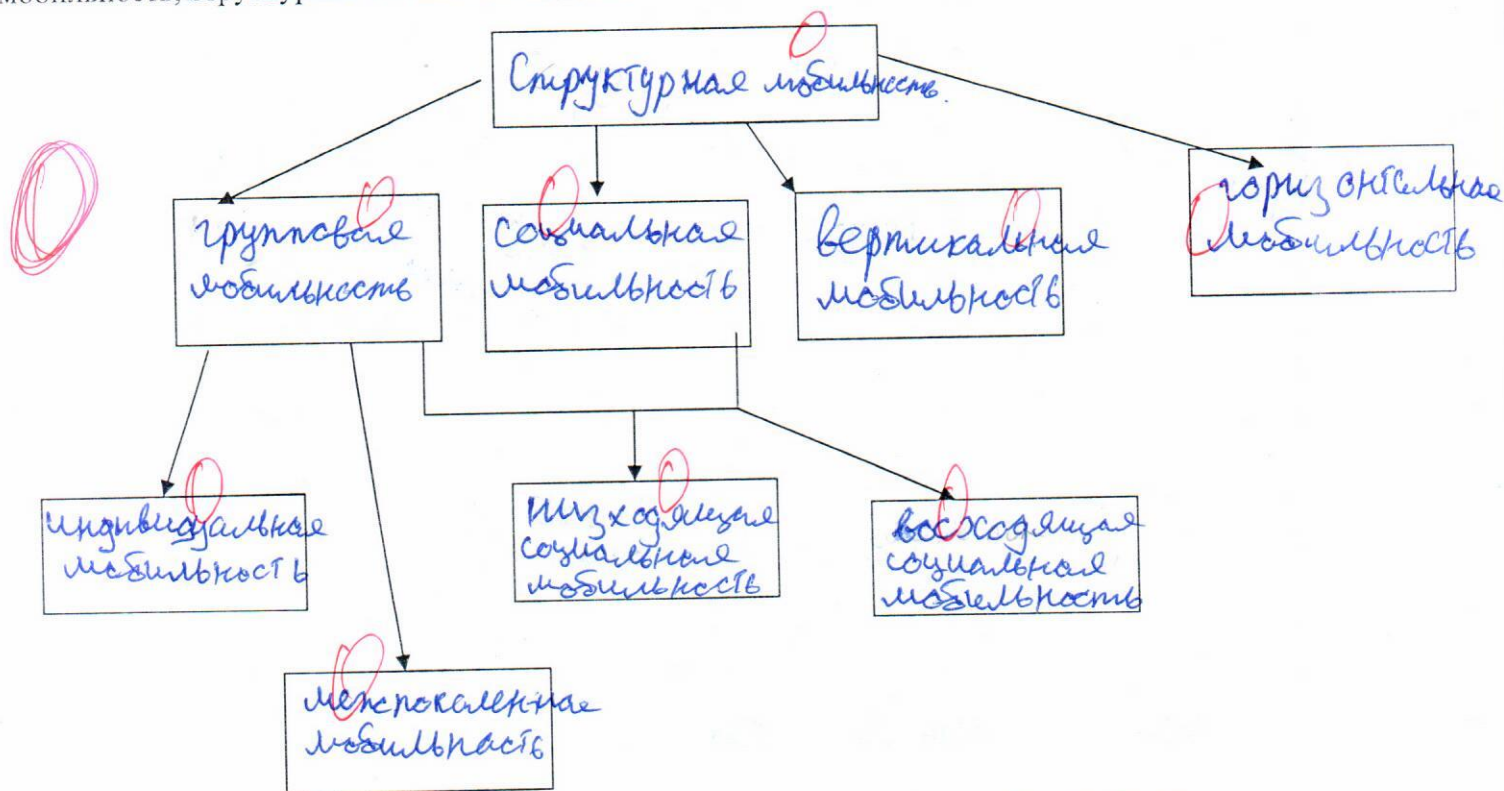 Структурная мобильность.
групповая
мобильность
социальная
мобильность
вертикальная
мобильность
горизонтальная
мобильность
индивидуальная
мобильность
низходящая
социальная
мобильность
восходящая
социальная
мобильность
межпоколенная
мобильность